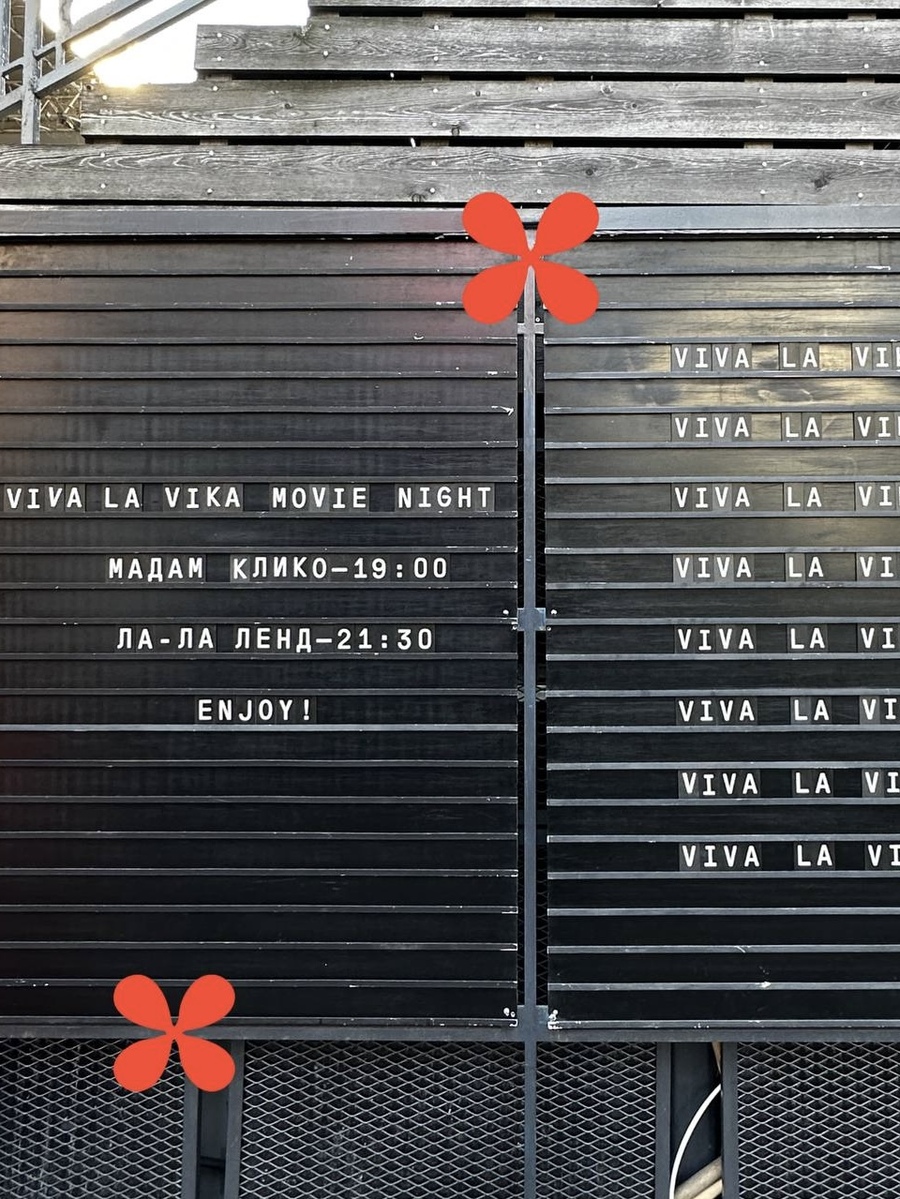 VIVA LA VIKA MOVIE NIGHT
МАДАМ КЛИКО—19:00
ЛА-ЛА ЛЕНД—21:30
ENJOY!
VIVA LA
VIVA LA
VIVA LA
VIVA LA
VIVA LA
VIVA LA
VIVA LA
VIVA LA